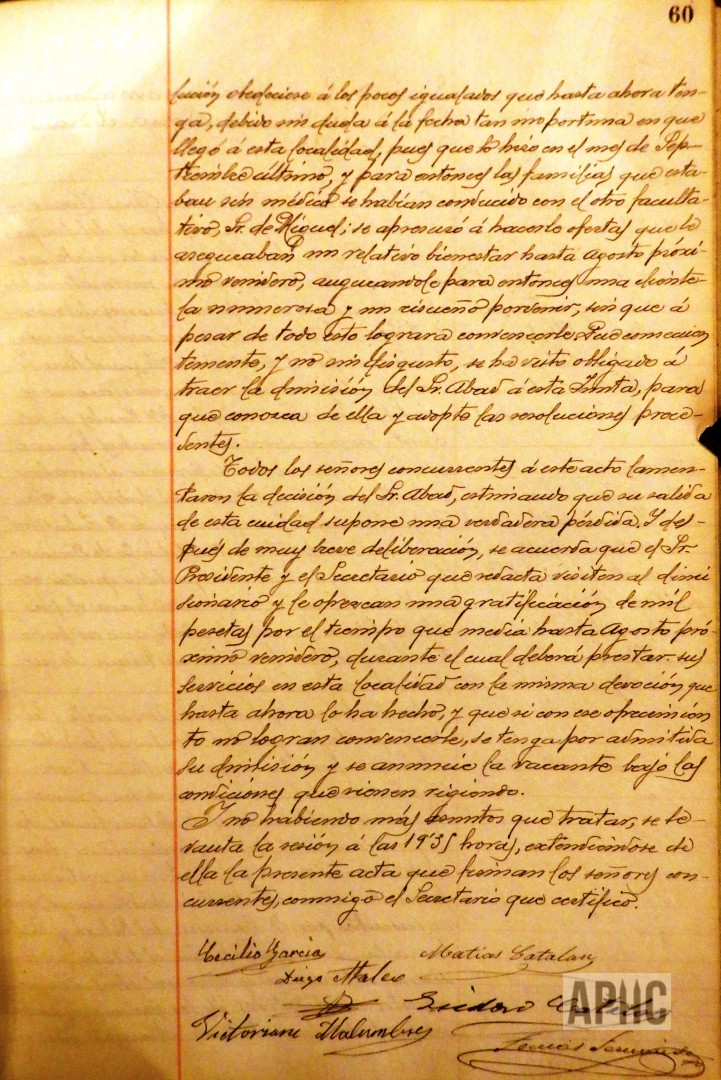 60
lución obedeciese á los pocos igualados que hasta ahora ten-
ga, debido sin duda á la fecha tan inoportuna en que
llegó á esta localidad, pues que lo hizo en el mes de Sep-
tiembre último, y para entonces las familias que esta-
ban sin médico se habían conducido con el otro faculta-
tivo, Sr. de Miguel; se apresuró á hacerle ofertas que le
aseguraban un relativo bienestar hasta Agosto próxi-
mo venidero, augurandole para entonces una cliente-
la numerosa y un risueño porvenir, sin que á
pesar de todo esto lograra convencerle. Que consecuen
temente, y no sin disgusto, se ha visto obligado á
traer la dimisión del Sr. Abad á esta Junta, para
que conozca de ella y adopte las resoluciones proce-
dentes.
Todos los señores concurrentes á este acto lamen-
taron la decisión del Sr. Abad, estimando que su salida
de esta ciudad supone una verdadera pérdida. Y des-
pués de muy breve deliberación, se acuerda que el Sr.
Presidente y el Secretario que redacta visiten al dimi
sionario y le ofrezcan una gratificación de mil
pesetas por el tiempo que media hasta Agosto pró-
ximo venidero, durante el cual deberá prestar sus
servicios en esta localidad con la misma devoción que
hasta ahora lo ha hecho, y que si con ese ofrecimien
to no logran convencerle, se tenga por admitida
su dimisión y se anuncie la vacante bajo las
condiciones que vienen rigiendo.
Y no habiendo más asuntos que tratar, se le-
vanta la sesión á las 19'35 horas, extendiéndose de
ella la presente acta que firman los señores con-
currentes, conmigo el Secretario que certifico.
Cecilio García Matias Catalan
Diego Mateo
Isidoro
Victoriano Malumbres
APHC